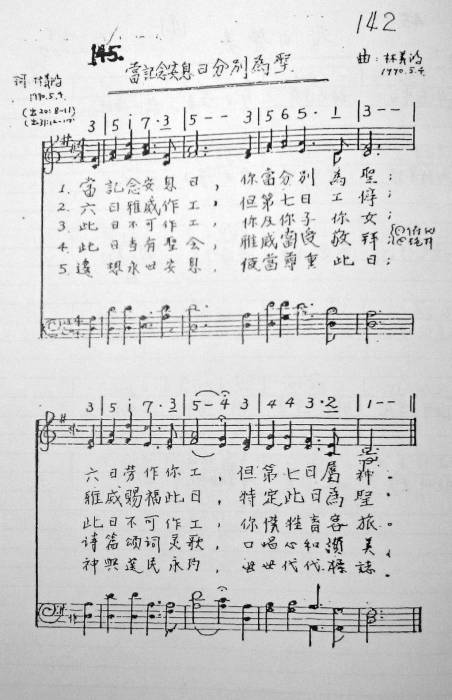 142
145.
當記念安息日分別為聖
詞:林義鴻
1990.5.9.
(出20:8-11)
曲:林義鴻
1990.5.9.
3 | 5 i 7·3 | 5 - - 5 | 5 6 5·1 | 3 - - |
1. 當記念安息日，你當分別為聖；
2. 六日雅威作工，但第七日工停；
3. 此日不可作工，你及你子你女；
4. 此日當有聖會，雅威當受敬拜；
5. 遠想永世安息，便當尊重此日；
3 | 5 i 7·3 | 5 - 4 3 | 3 4 4 3·2 | 1 - - ||
六日勞作你工，但第七日屬神。
雅威賜福此日，特定此日為聖。
此日不可作工，你僕牲畜客旅。
诗篇颂词灵歌，口唱心和讚美。
神與選民永約，世世代代標誌。